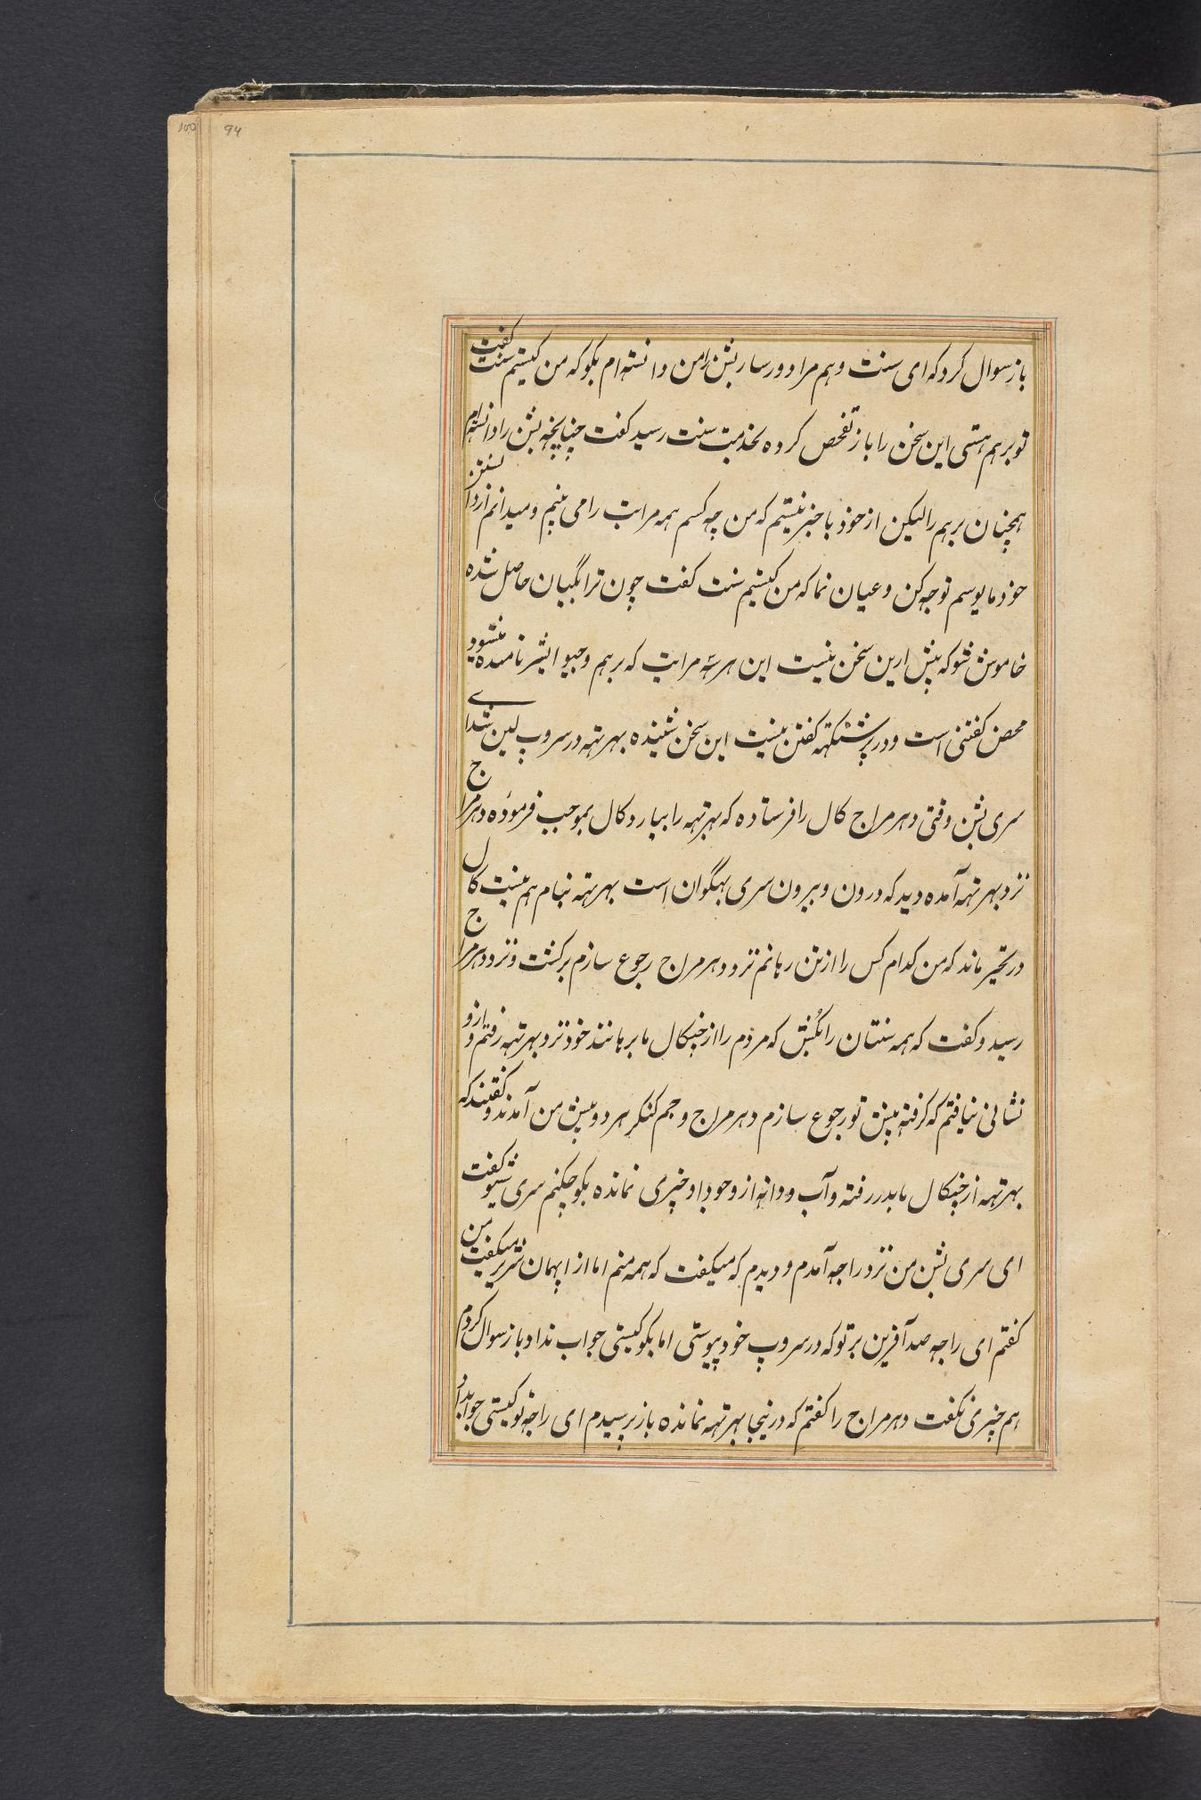 100 94
باز سوال کرد که ای سنت و هم مراد و رسا ربشن را من دانسته ام بگو که من کیستم سنت گفت
تو برهم هستی این سخن را باز تفحص کرده بخدمت سنت رسید گفت چنانچه بشن را دانسته ام
همچنان برهم را لیکن از خود با خبر نیستم که من چه کسم همه مراتب را می بینم و میدانم از
خود مایوسم توجه کن و عیان نما که من کیستم سنت گفت چون ترا بگیان حاصل شده
خاموش شو که پیش ازین سخن نیست این هر سه مراتب که برهم و جیو ایشر نامیده میشود
محض گفتنی است و در گفتن نیست این سخن شنیده بهرتهه در سروپ لین شد ای
سری بشن وقتی دهرمراج کال را فرستاده که بهرتهه را بیارد کال بموجب فرموده دهرمراج
نزد بهرتهه آمده دید که درون و بیرون سری بهگوان است بهرتهه بنام هم نیست کال
در تحیر ماند که من کدام کس را از تن رهانم نزد دهرمراج رجوع سازم برگشت و نزد دهرمراج
رسید و گفت که همه سنتان را بکش که مردم را از چنگال ما برهانند خود نزد بهرتهه رفتم و ازو
نشانی نیافتم که گرفته پیش تو رجوع سازم دهرمراج و جم کنکر هر دو پیش من آمدند و گفتند که
بهرتهه از چنگال ما بدر رفته و آب و دانه از وجود او چیزی نمانده بگو چکنم سری شیو گفت
ای سری بشن من نزد راجه آمدم و دیدم که میگفت که همه منم اما از ابهمان میگفت من
گفتم ای راجه صد آفرین بر تو که در سروپ خود پیوستی اما بگو کیستی جواب نداد باز سوال کردم
هم چیزی نگفت دهرمراج را گفتم که درینجا بهرتهه نمانده باز پرسیدم ای راجه تو کیستی جواب نداد